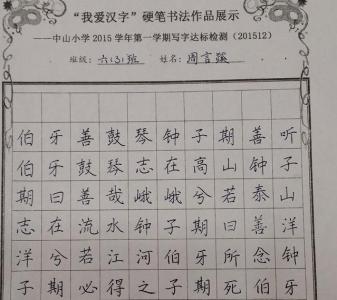 “我爱汉字”硬笔书法作品展示
——中山小学2015学年第一学期写字达标检测（201512）
班级：六(3)班 姓名：周言蹊
伯牙善鼓琴钟子期善听
伯牙鼓琴志在高山钟子
期曰善哉峨峨兮若泰山
志在流水钟子期曰善洋
洋兮若江河伯牙所念钟
子期必得之子期死伯牙